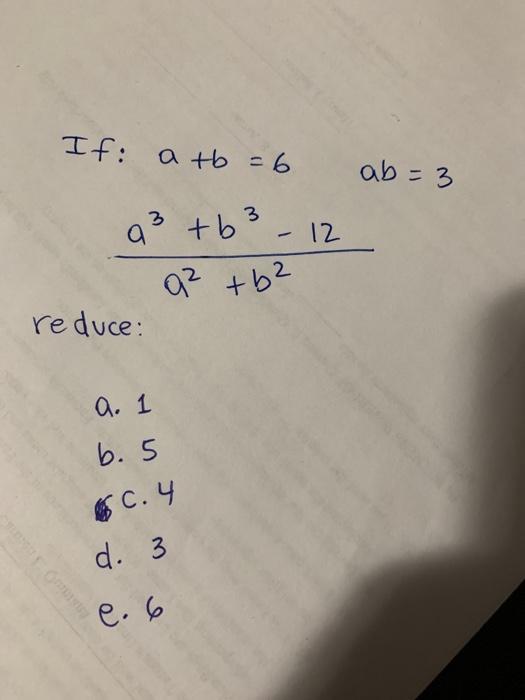 If: a + b = 6 ab = 3
a³ + b³ - 12
a² + b²
reduce:
a. 1
b. 5
c. 4
d. 3
e. 6